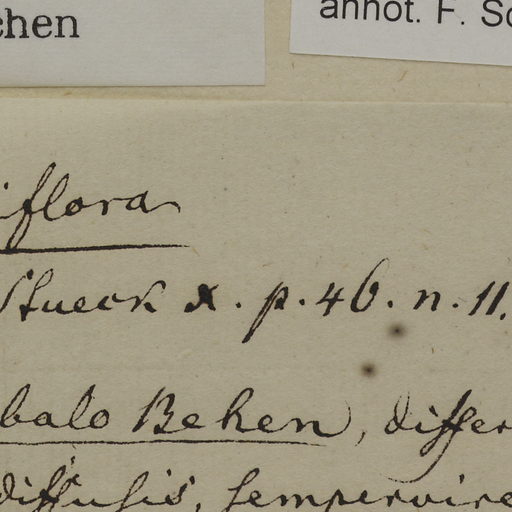 chen
annot. F. Sc
iflora
Stueck x. p. 46. n. 11.
balo Behen, differ
diffusis, sempervire